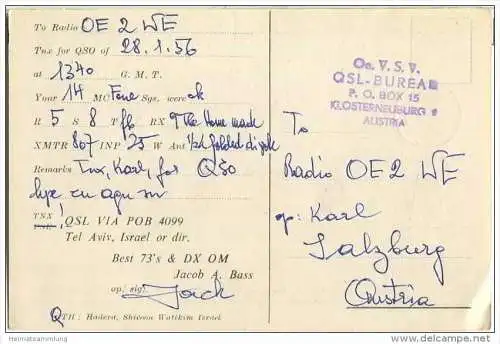 To Radio OE 2 WE
Tnx for QSO of 28.1.56
at 1340 G. M. T.
Your 14 MC Fone Sgs. were ok
R 5 S 8 RX 9 Tube Home made
XMTR 807 INP 25 W Ant 1/2λ folded dipole
Remarks Tnx, Karl, for QSO
hpe cu agn
TNX
QSL VIA POB 4099
Tel Aviv, Israel or dir.
Best 73's & DX OM
Jacob A. Bass
op. sig. Jack
QTH: Hadera, Shivoon Watikim Israel
Oe. V. S. V.
QSL-BUREAU
P. O. BOX 15
KLOSTERNEUBURG
AUSTRIA
To
Radio OE2 WE
op: Karl
Salzburg
Austria
Heimatsammlung
delcampe.net